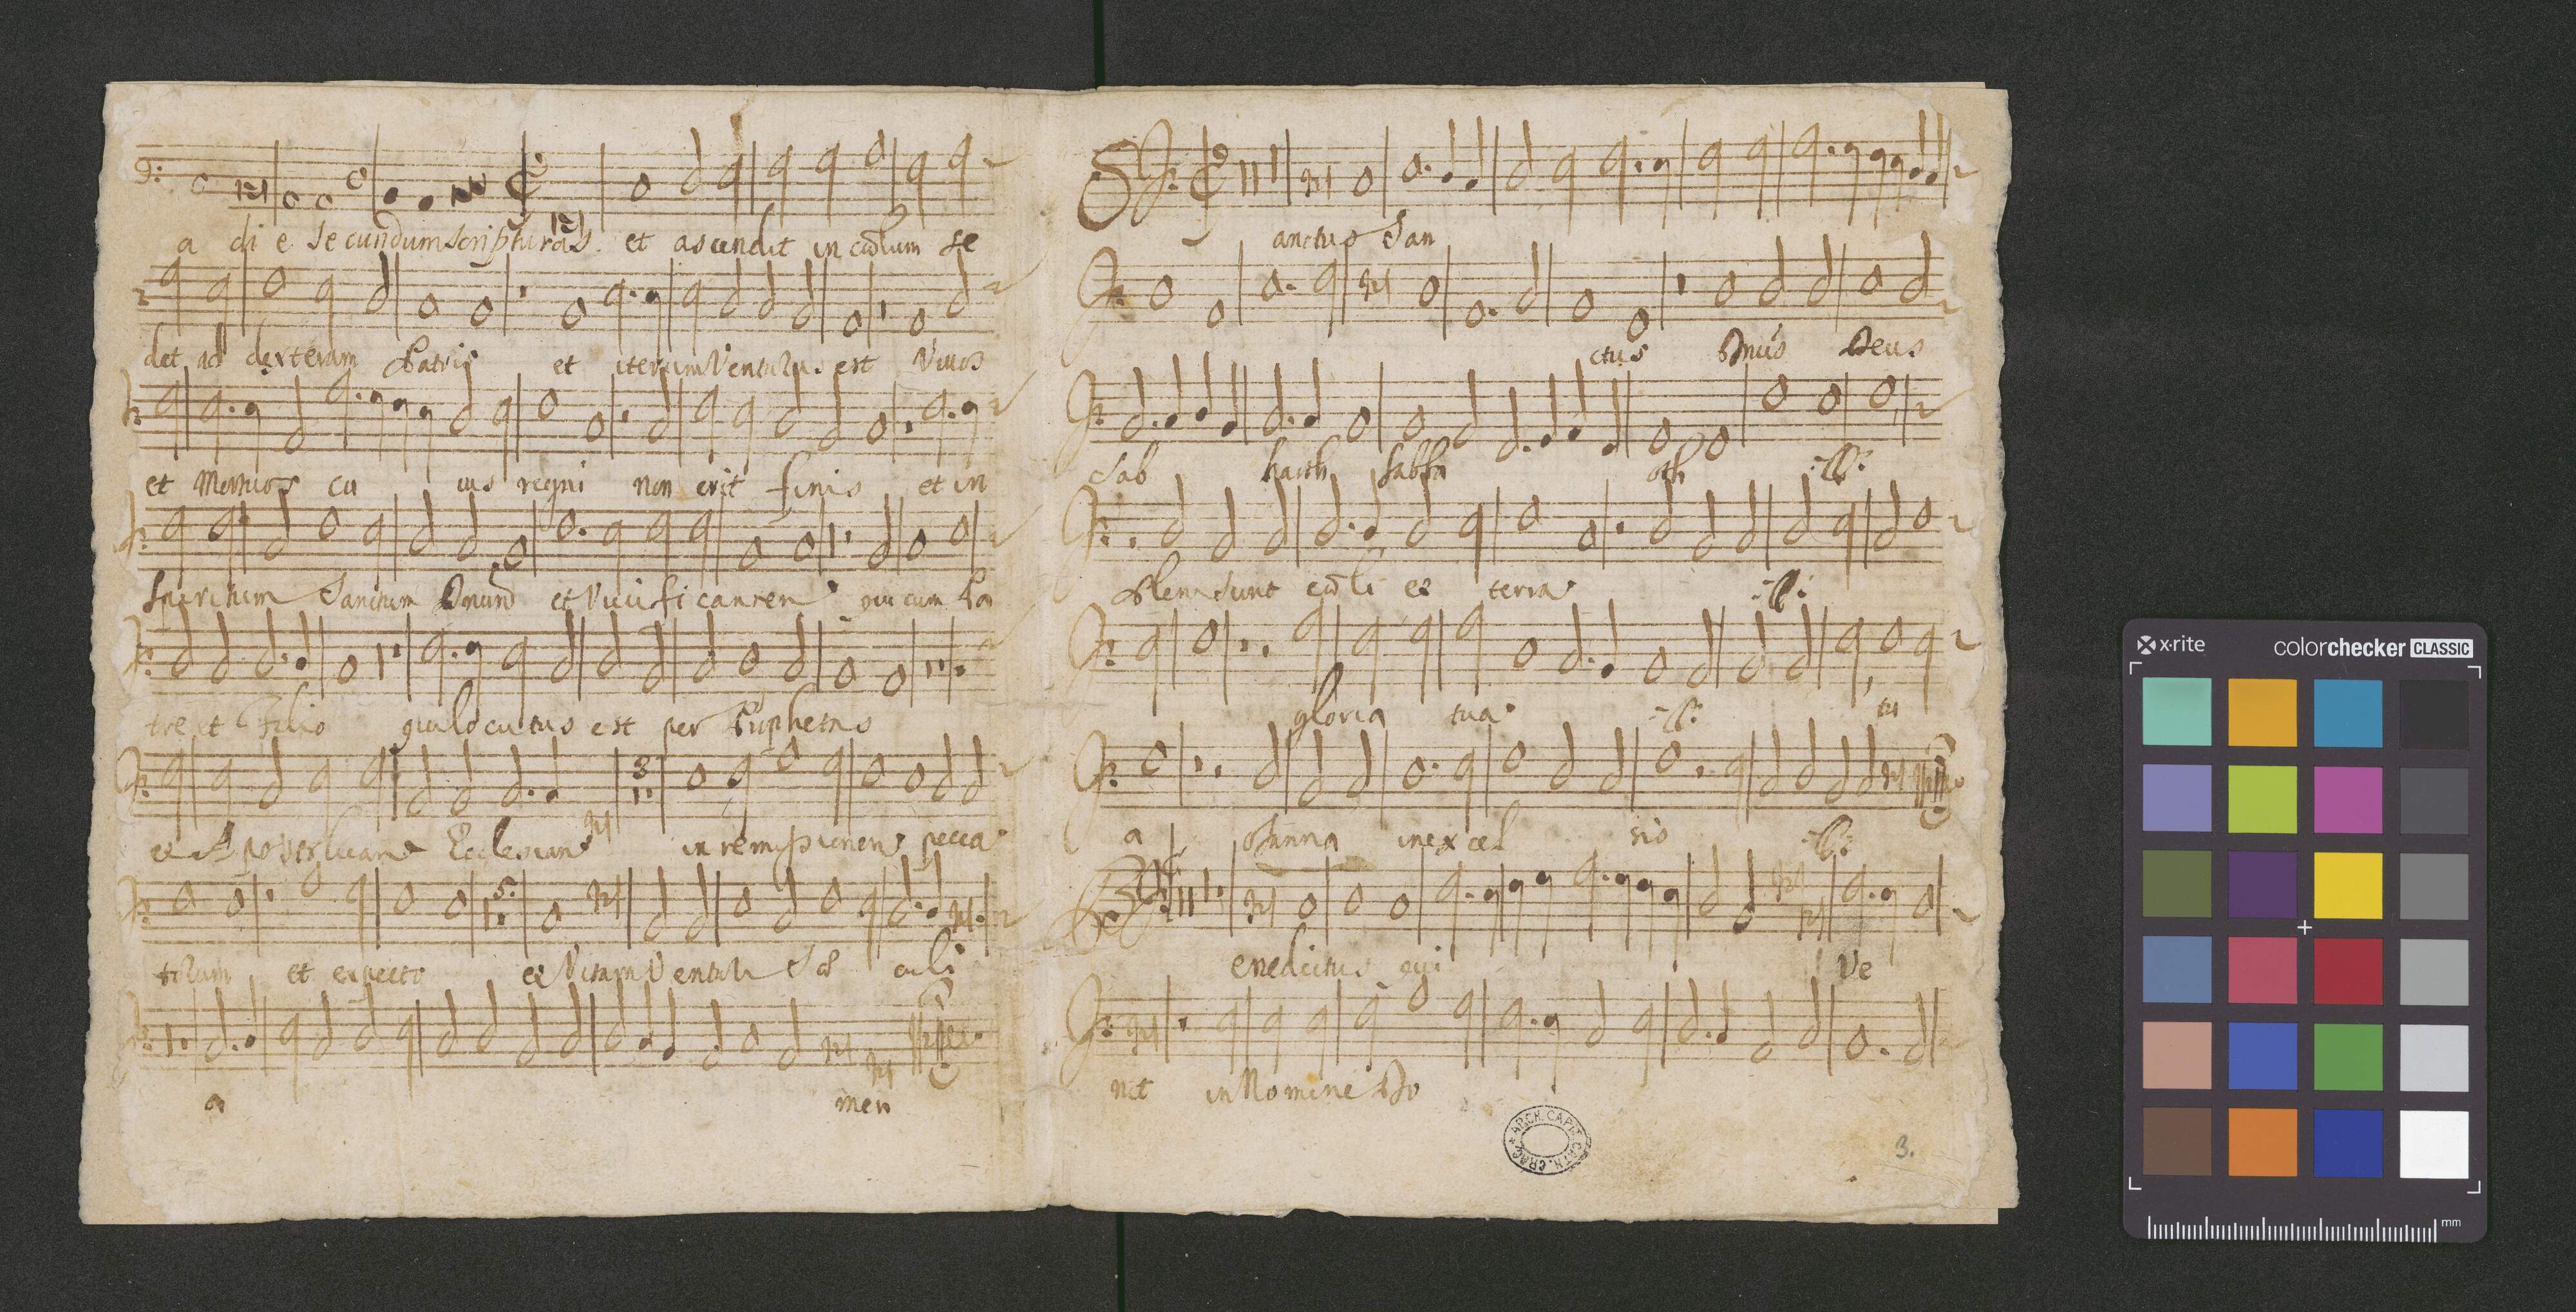 a di e Secundum scripturas. et ascendit in cœlum se
det ad dexteram Patris et iterum Venturus est Vivos
et Mortuos cu ius regni non erit finis et in
Spiritum Sanctum Dnum et Vivificantem qui cum Pa
tre et Filio qui locutus est per Prophetas
et Apostolicam Ecclesiam in remissionem pecca
3
torum et expecto et Vitam Venturi Sæ culi
5.
a men
Sanctus San
ctus Dnus Deus
Sab baoth Sabba oth
Pleni sunt cœli et terra
gloria tua tu
a Osanna in excel sis
Benedictus qui Ve
nit in Nomine Do
ARCH. CAPIT. CATH. CRAC.
3.
x-rite
colorchecker CLASSIC
mm